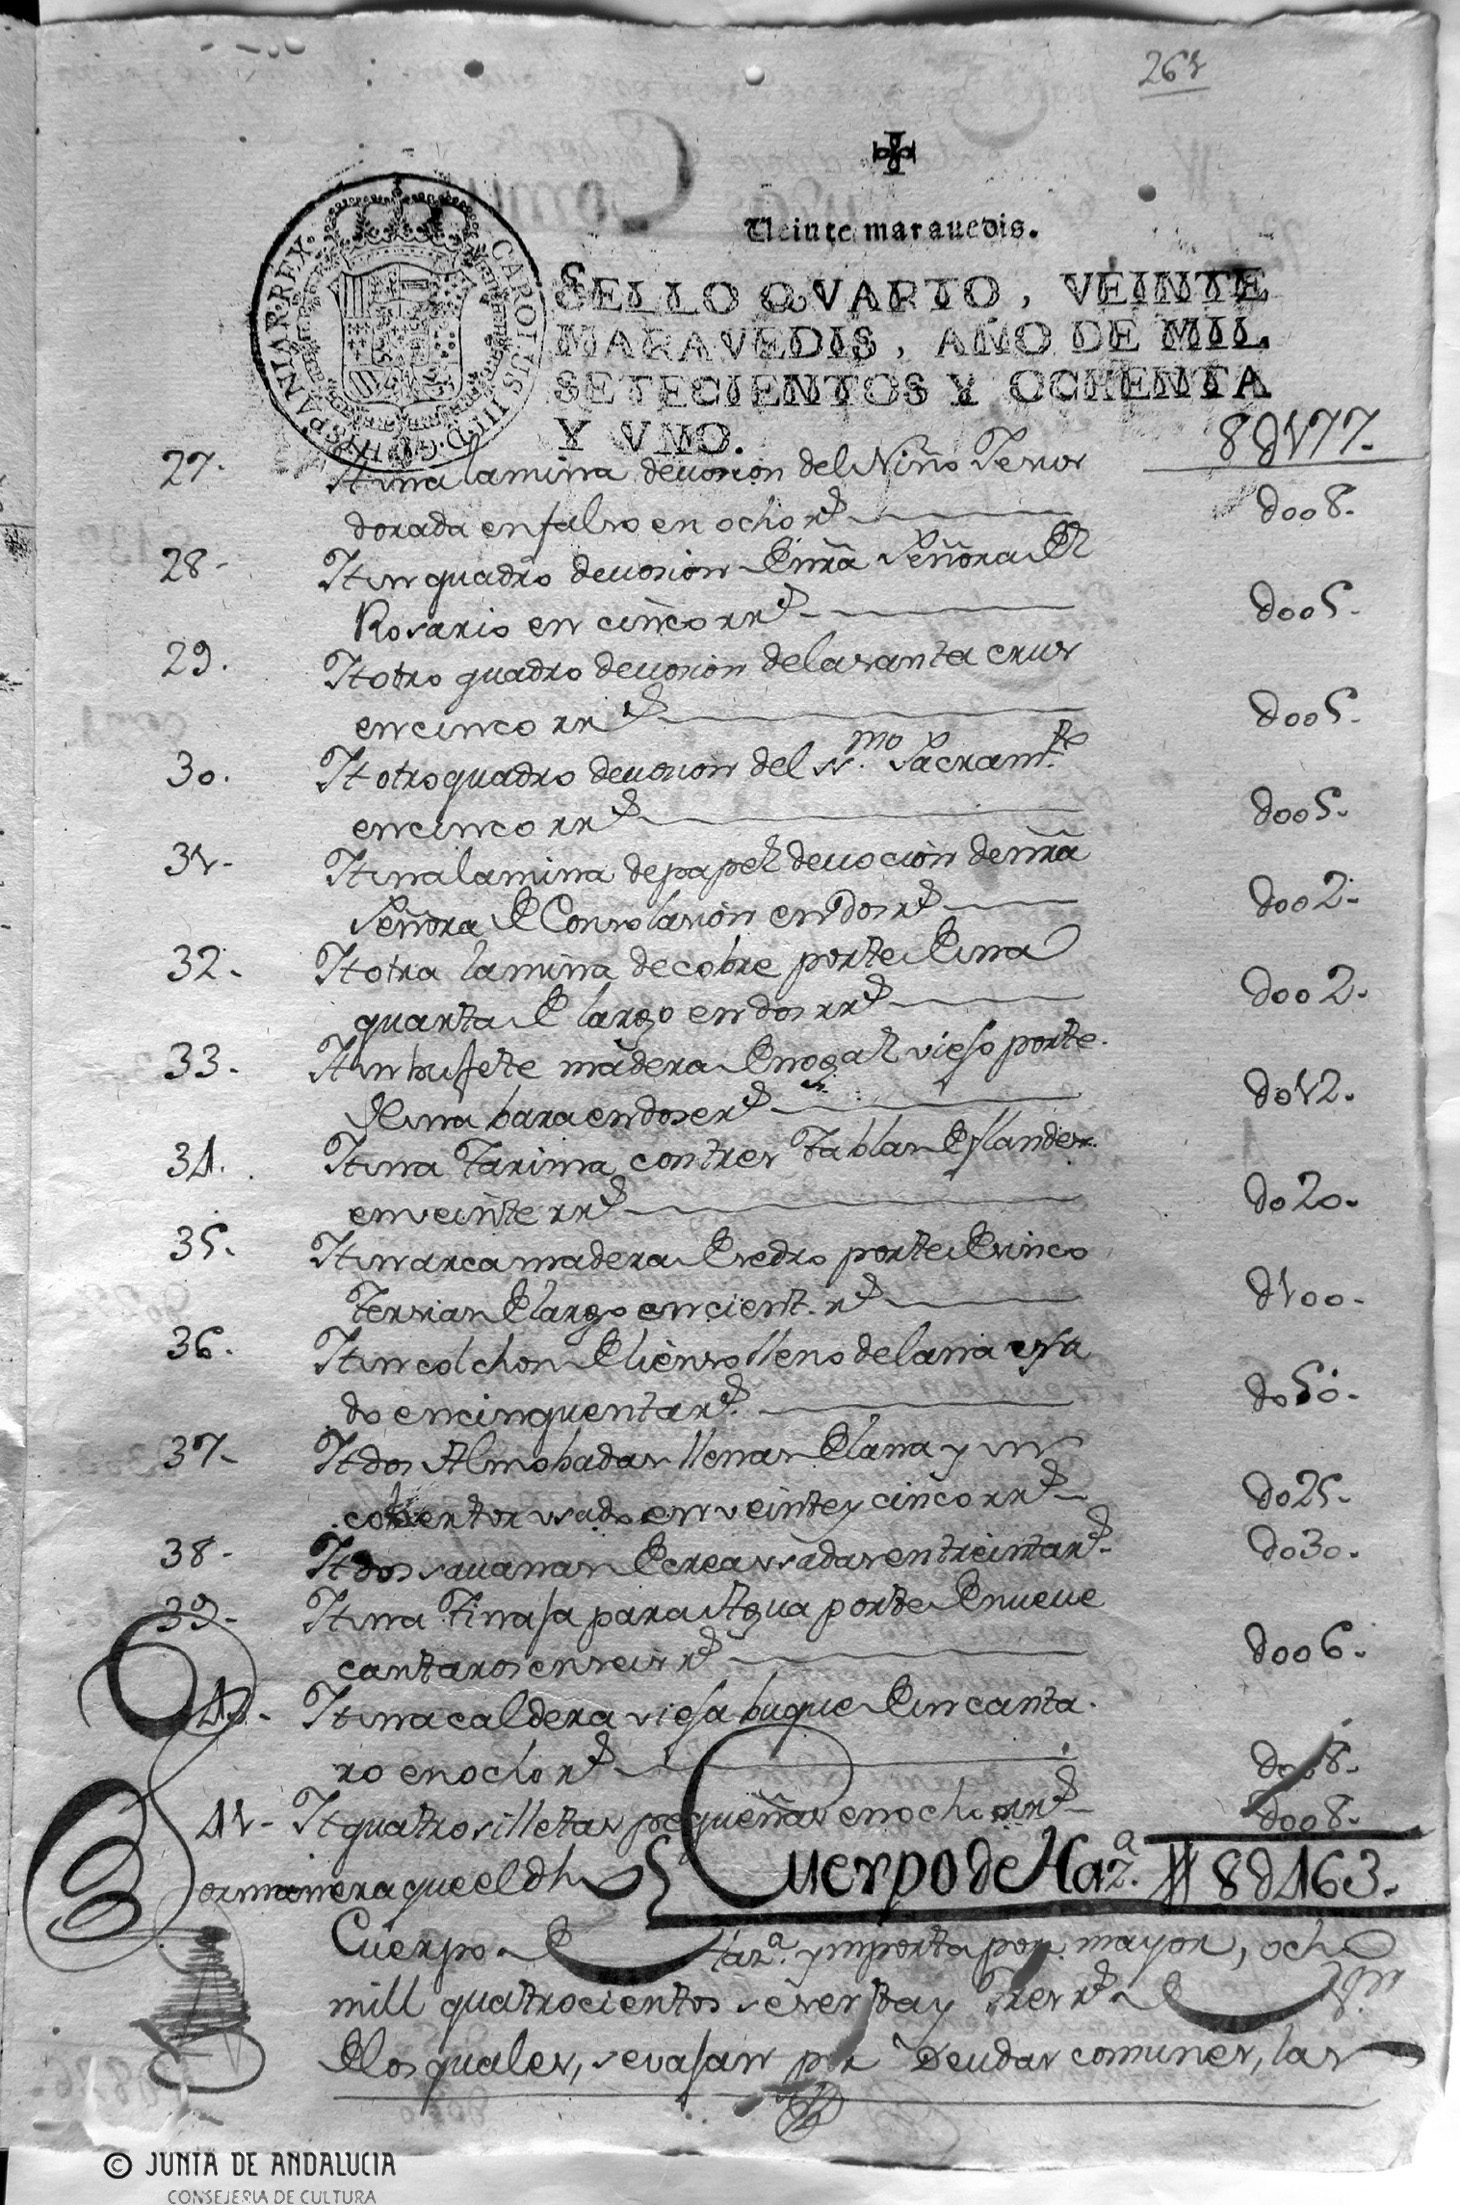 261
Veinte maravedis.
SELLO QVARTO, VEINTE
MARAVEDIS, AÑO DE MIL
SETECIENTOS Y OCHENTA
Y VNO.
CAROLUS III. D. G. HISPANIAR. REX.
8d177.
27. It una lamina devosion del Niño Jesus
dorada en falso en ocho rs d008.
28. It un quadro devosion de nrã Señora del
Rosario en cinco rrs d005.
29. It otro quadro devosion de la santa crus
en cinco rrs d005.
30. It otro quadro devosion del S.mo Sacramto
en cinco rrs d005.
31. It una lamina de papel devocion de nrã
Señora de Consolasion en dos rs d002.
32. It otra lamina de cobre porte de una
quarta de largo en dos rrs d002.
33. It un bufete madera de nogal viejo porte
de una bara en dose rs d012.
34. It una Tarima con tres tablas de flandes
en veinte rrs d020.
35. It un arca madera de sedro porte de sinco
tersias de largo en cient. rs d100.
36. It un colchon de lienso lleno de lana usa
do en cinquenta rs. d050.
37. It dos Almohadas llenas de lana y un
cobertor usado en veinte y cinco rrs d025.
38. It dos savanas de crea usadas en treinta rs. d030.
39. It una Tinaja para Agua porte de nueve
cantaros en seis rs d006.
40. It una caldera vieja buque de un canta
ro en ocho rs d008.
41. It quatro silletas pequeñas en ocho rrs d008.
Cuerpo de Haz.a 8d463.
De manera que el dho
Cuerpo de Haz.a ymporta por mayor, ocho
mill quatrocientos sesenta y tres rs de von
de los quales, se vajan por Deudas comunes, las
© JUNTA DE ANDALUCIA
CONSEJERIA DE CULTURA